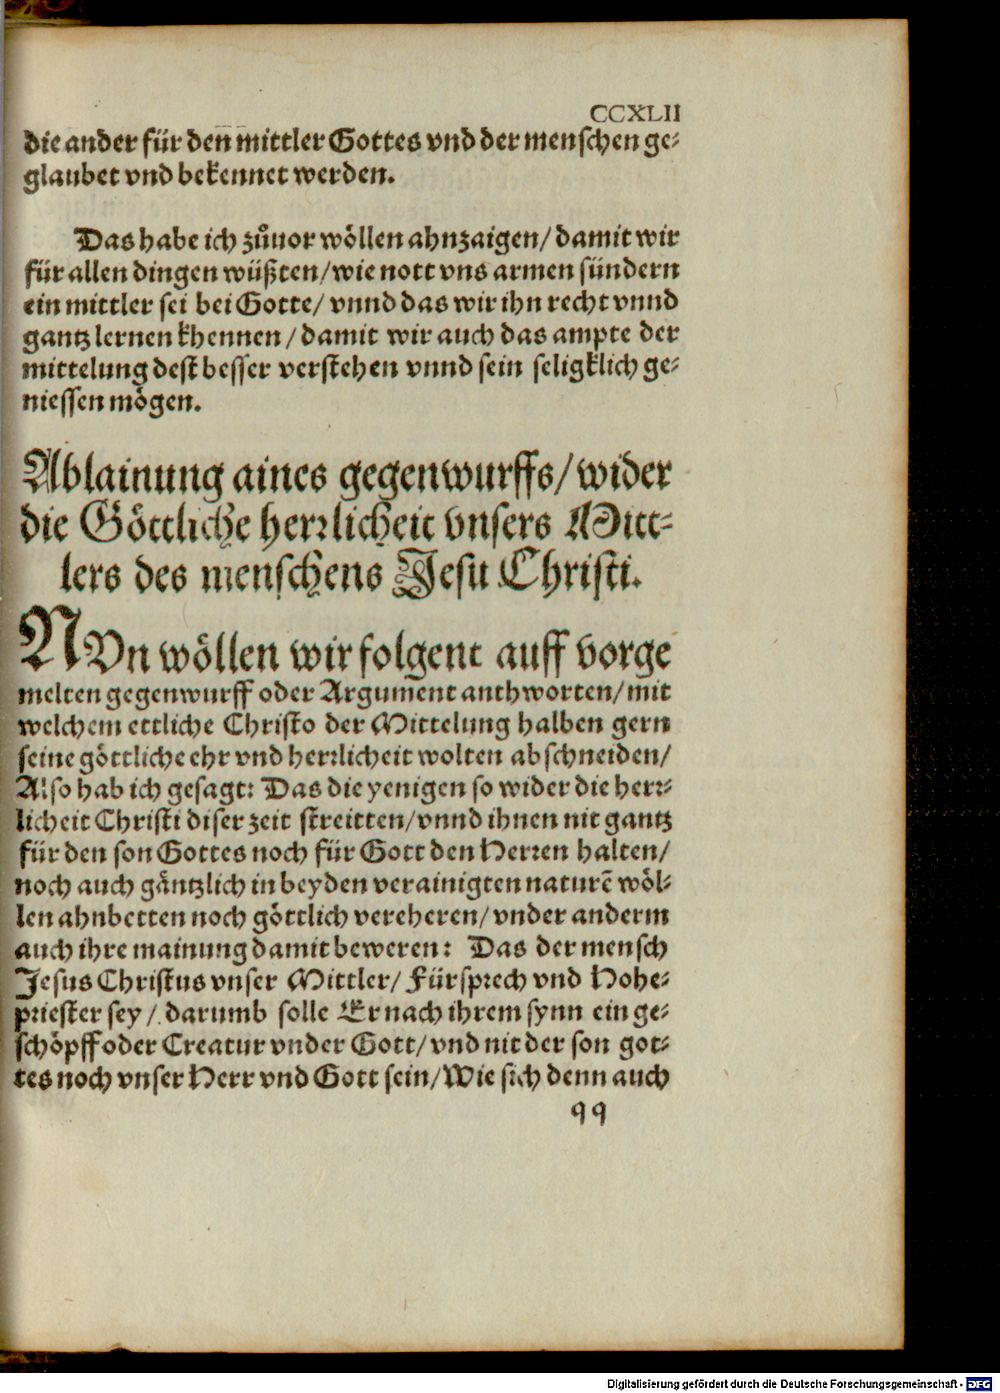 CCXLII
die ander für den mittler Gottes vnd der menschen ge-
glaubet vnd bekennet werden.
Das habe ich zůuor wöllen ahnzaigen/ damit wir
für allen dingen wüßten/ wie nott vns armen sündern
ein mittler sei bei Gotte/ vnnd das wir ihn recht vnnd
gantz lernen khennen/ damit wir auch das ampte der
mittelung dest besser verstehen vnnd sein seligklich ge-
niessen mögen.
Ablainung aines gegenwurffs/ wider
die Göttliche herrlicheit vnsers Mitt-
lers des menschens Jesu Christi.
NVn wöllen wir folgent auff vorge
melten gegenwurff oder Argument anthworten/ mit
welchem ettliche Christo der Mittelung halben gern
seine göttliche ehr vnd herrlicheit wolten abschneiden/
Also hab ich gesagt: Das die yenigen so wider die herr-
licheit Christi diser zeit streitten/ vnnd ihnen nit gantz
für den son Gottes noch für Gott den Herren halten/
noch auch gäntzlich in beyden verainigten naturē wöl-
len ahnbetten noch göttlich vereheren/ vnder anderm
auch ihre mainung damit beweren: Das der mensch
Jesus Christus vnser Mittler/ Fürsprech vnd Hohe-
priester sey/ darumb solle Er nach ihrem synn ein ge-
schöpff oder Creatur vnder Gott/ vnd nit der son got-
tes noch vnser Herr vnd Gott sein/ Wie sich denn auch
qq
Digitalisierung gefördert durch die Deutsche Forschungsgemeinschaft - DFG